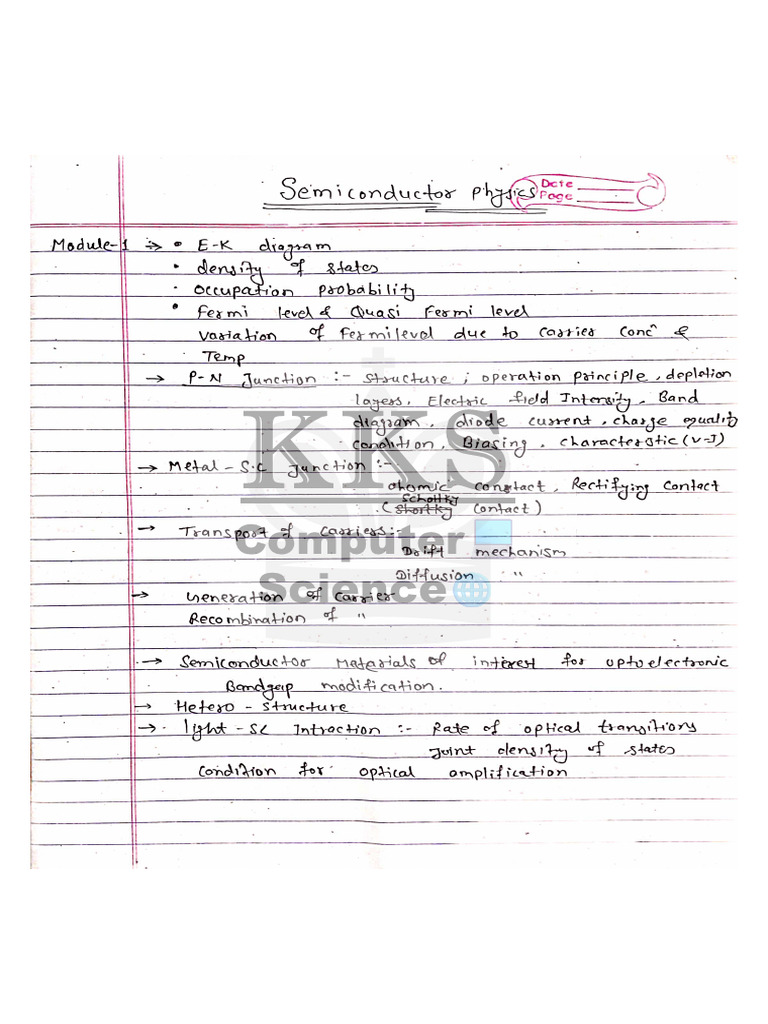 Semiconductor Physics
Date
Page
Module-1 :→ • E-K diagram
• density of states
• occupation probability
• Fermi level & Quasi Fermi level
Variation of Fermi level due to carrier concn &
Temp
→ P-N Junction :- Structure, operation principle, depletion
layers, Electric field Intensity, Band
diagram, diode current, charge equality
condition, Biasing, characterestic (V-I)
→ Metal - S.C Junction :-
ohomic constact, Rectifying Contact
Schottky
(Shortky contact)
→ Transport of Carriers:-
Drift mechanism
Diffusion "
→ Generation of carrier
Recombination of "
→ Semiconductor Materials of interest for optoelectronic
Bandgap modification.
→ Hetero - structure
→ light - SC Intraction :- Rate of optical transitions
Joint density of states
Condition for optical amplification
KKS
Computer
Science